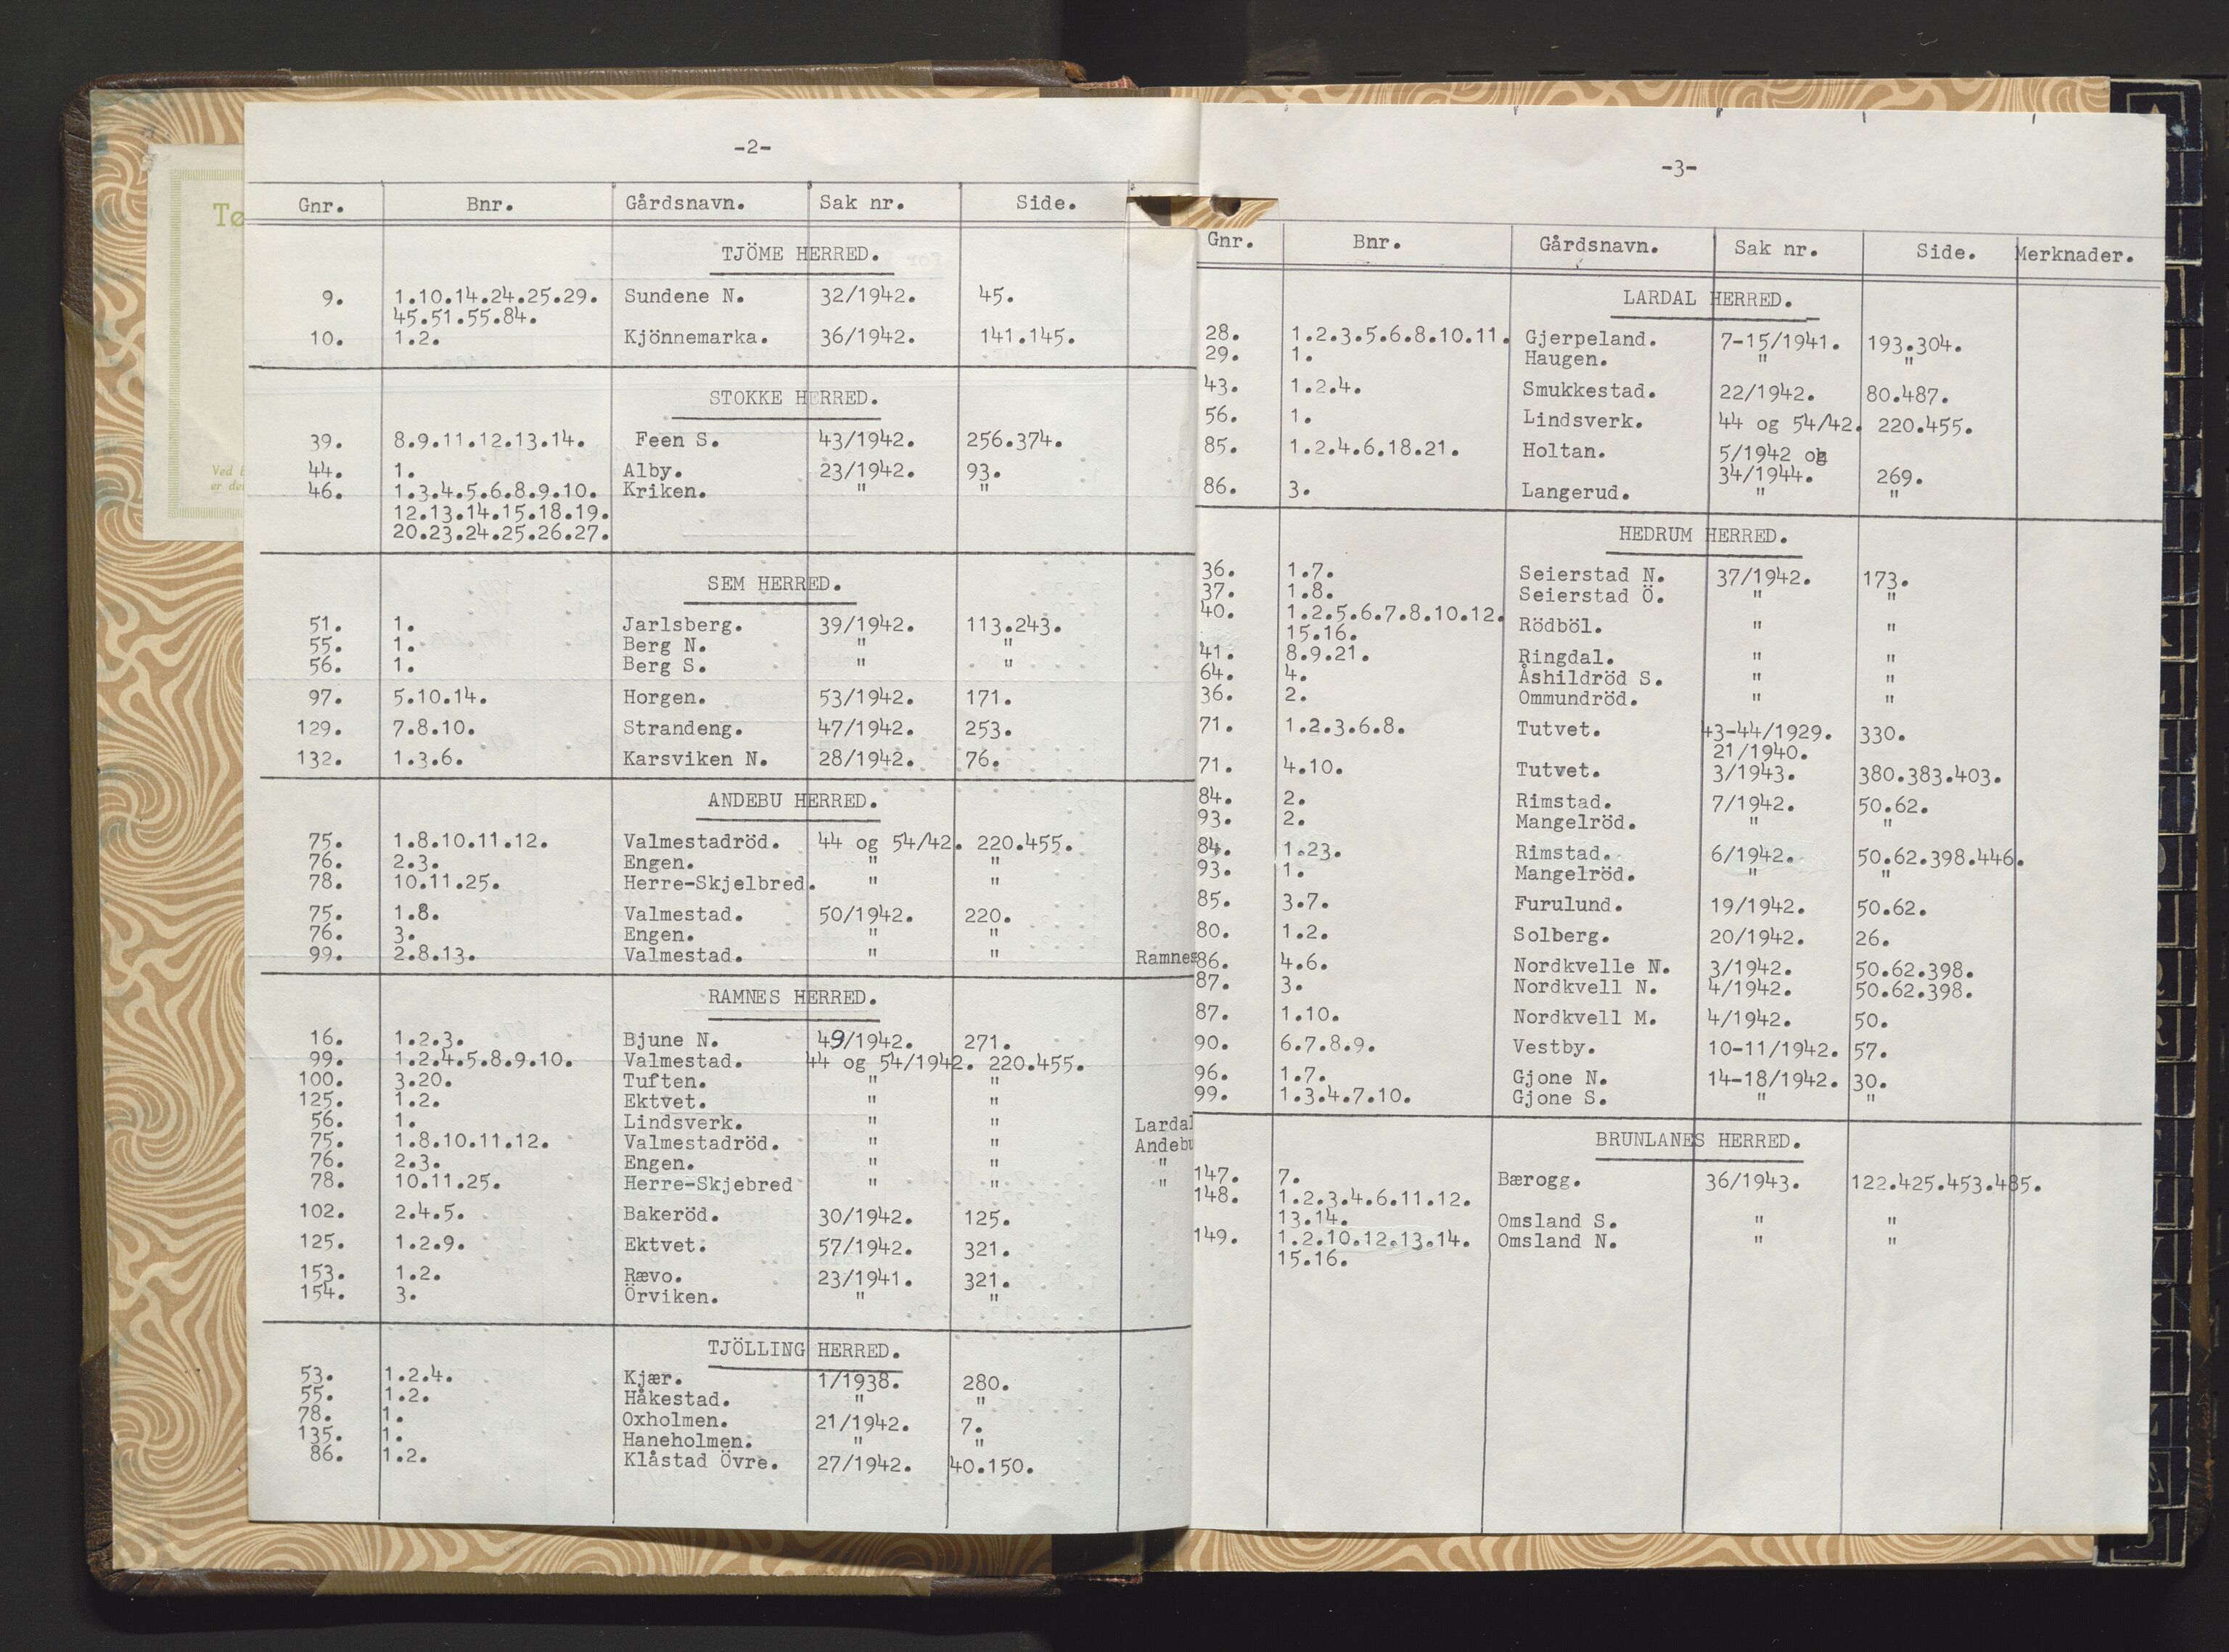 -2-
Gnr. Bnr. Gårdsnavn. Sak nr. Side.
TJÖME HERRED.
9. 1.10.14.24.25.29. Sundene N. 32/1942. 45.
45.51.55.84.
10. 1.2. Kjönnemarka. 36/1942. 141.145.
STOKKE HERRED.
39. 8.9.11.12.13.14. Feen S. 43/1942. 256.374.
44. 1. Alby. 23/1942. 93.
46. 1.3.4.5.6.8.9.10. Kriken. " "
12.13.14.15.18.19.
20.23.24.25.26.27.
SEM HERRED.
51. 1. Jarlsberg. 39/1942. 113.243.
55. 1. Berg N. " "
56. 1. Berg S. " "
97. 5.10.14. Horgen. 53/1942. 171.
129. 7.8.10. Strandeng. 47/1942. 253.
132. 1.3.6. Karsviken N. 28/1942. 76.
ANDEBU HERRED.
75. 1.8.10.11.12. Valmestadröd. 44 og 54/42. 220.455.
76. 2.3. Engen. " "
78. 10.11.25. Herre-Skjelbred. " "
75. 1.8. Valmestad. 50/1942. 220.
76. 3. Engen. " "
99. 2.8.13. Valmestad. " " Ramnes
RAMNES HERRED.
16. 1.2.3. Bjune N. 49/1942. 271.
99. 1.2.4.5.8.9.10. Valmestad. 44 og 54/1942. 220.455.
100. 3.20. Tuften. " "
125. 1.2. Ektvet. " "
56. 1. Lindsverk. " " Lardal
75. 1.8.10.11.12. Valmestadröd. " " Andebu
76. 2.3. Engen. " " "
78. 10.11.25. Herre-Skjebred " " "
102. 2.4.5. Bakeröd. 30/1942. 125.
125. 1.2.9. Ektvet. 57/1942. 321.
153. 1.2. Rævo. 23/1941. 321.
154. 3. Örviken. " "
TJÖLLING HERRED.
53. 1.2.4. Kjær. 1/1938. 280.
55. 1.2. Håkestad. " "
78. 1. Oxholmen. 21/1942. 7.
135. 1. Haneholmen. " "
86. 1.2. Klåstad Övre. 27/1942. 40.150.
-3-
Gnr. Bnr. Gårdsnavn. Sak nr. Side. Merknader.
LARDAL HERRED.
28. 1.2.3.5.6.8.10.11. Gjerpeland. 7-15/1941. 193.304.
29. 1. Haugen. " "
43. 1.2.4. Smukkestad. 22/1942. 80.487.
56. 1. Lindsverk. 44 og 54/42. 220.455.
85. 1.2.4.6.18.21. Holtan. 5/1942 og
34/1944. 269.
86. 3. Langerud. " "
HEDRUM HERRED.
36. 1.7. Seierstad N. 37/1942. 173.
37. 1.8. Seierstad Ö. " "
40. 1.2.5.6.7.8.10.12.
15.16. Rödböl. " "
41. 8.9.21. Ringdal. " "
64. 4. Åshildröd S. " "
36. 2. Ommundröd. " "
71. 1.2.3.6.8. Tutvet. 43-44/1929. 330.
21/1940.
71. 4.10. Tutvet. 3/1943. 380.383.403.
84. 2. Rimstad. 7/1942. 50.62.
93. 2. Mangelröd. " "
84. 1.23. Rimstad. 6/1942. 50.62.398.446.
93. 1. Mangelröd. " "
85. 3.7. Furulund. 19/1942. 50.62.
80. 1.2. Solberg. 20/1942. 26.
86. 4.6. Nordkvelle N. 3/1942. 50.62.398.
87. 3. Nordkvell N. 4/1942. 50.62.398.
87. 1.10. Nordkvell M. 4/1942. 50.
90. 6.7.8.9. Vestby. 10-11/1942. 57.
96. 1.7. Gjone N. 14-18/1942. 30.
99. 1.3.4.7.10. Gjone S. " "
BRUNLANES HERRED.
147. 7. Bærogg. 36/1943. 122.425.453.485.
148. 1.2.3.4.6.11.12.
13.14. Omsland S. " "
149. 1.2.10.12.13.14. Omsland N. " "
15.16.
Tø
Ved
er